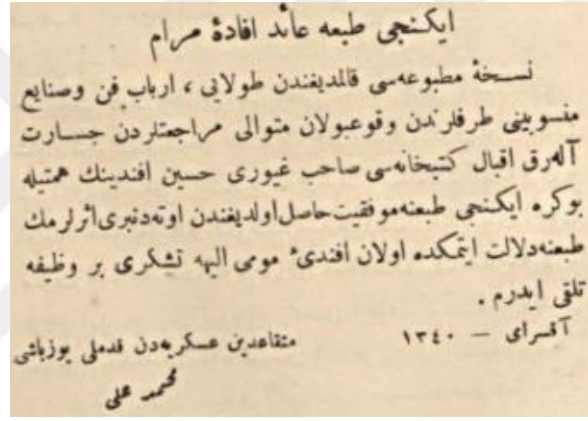 ایکنجی طبعه عائد افادهٔ مرام
نسخهٔ مطبوعه‌سی قالمدیغندن طولایی ، ارباب فن وصنایع
منسوبینی طرفلرندن وقوعبولان متوالی مراجعتلردن جسارت
آله‌رق اقبال کتبخانه‌سی صاحب غیوری حسین افندینك همتیله
بوکره ایکنجی طبعنه‌موفقیت‌حاصل‌اولدیغندن اوته‌دنبری‌اثرلرمك
طبعنه‌دلالت ایتمکده اولان افندیٔ مومی الیهه تشکری بر وظیفه
تلقی ایدرم .
آقسرای — ۱۳٤۰
متقاعدین عسکریه‌دن قدملی یوزباشی
محمد علی